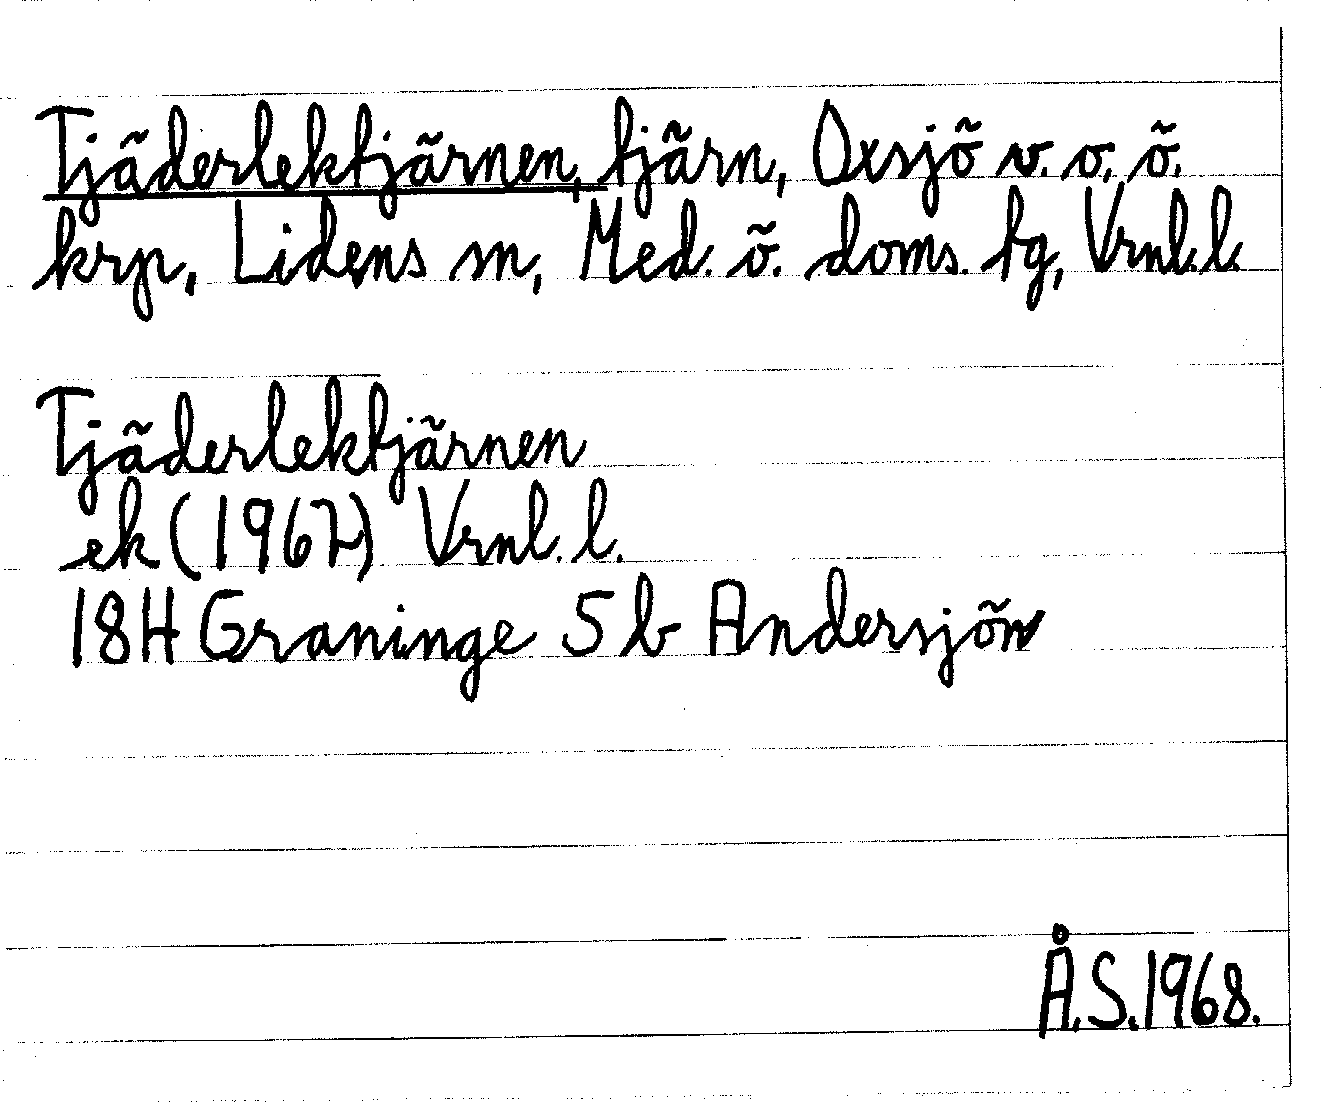 Tjäderlektjärnen, tjärn, Oxsjö v. o. ö.
krp, Lidens sn, Med. ö. doms. tg, Vrnl.l.
Tjäderlektjärnen
ek (1967) Vrnl. l.
18H Graninge 5 b Andersjön
Å.S.1968.